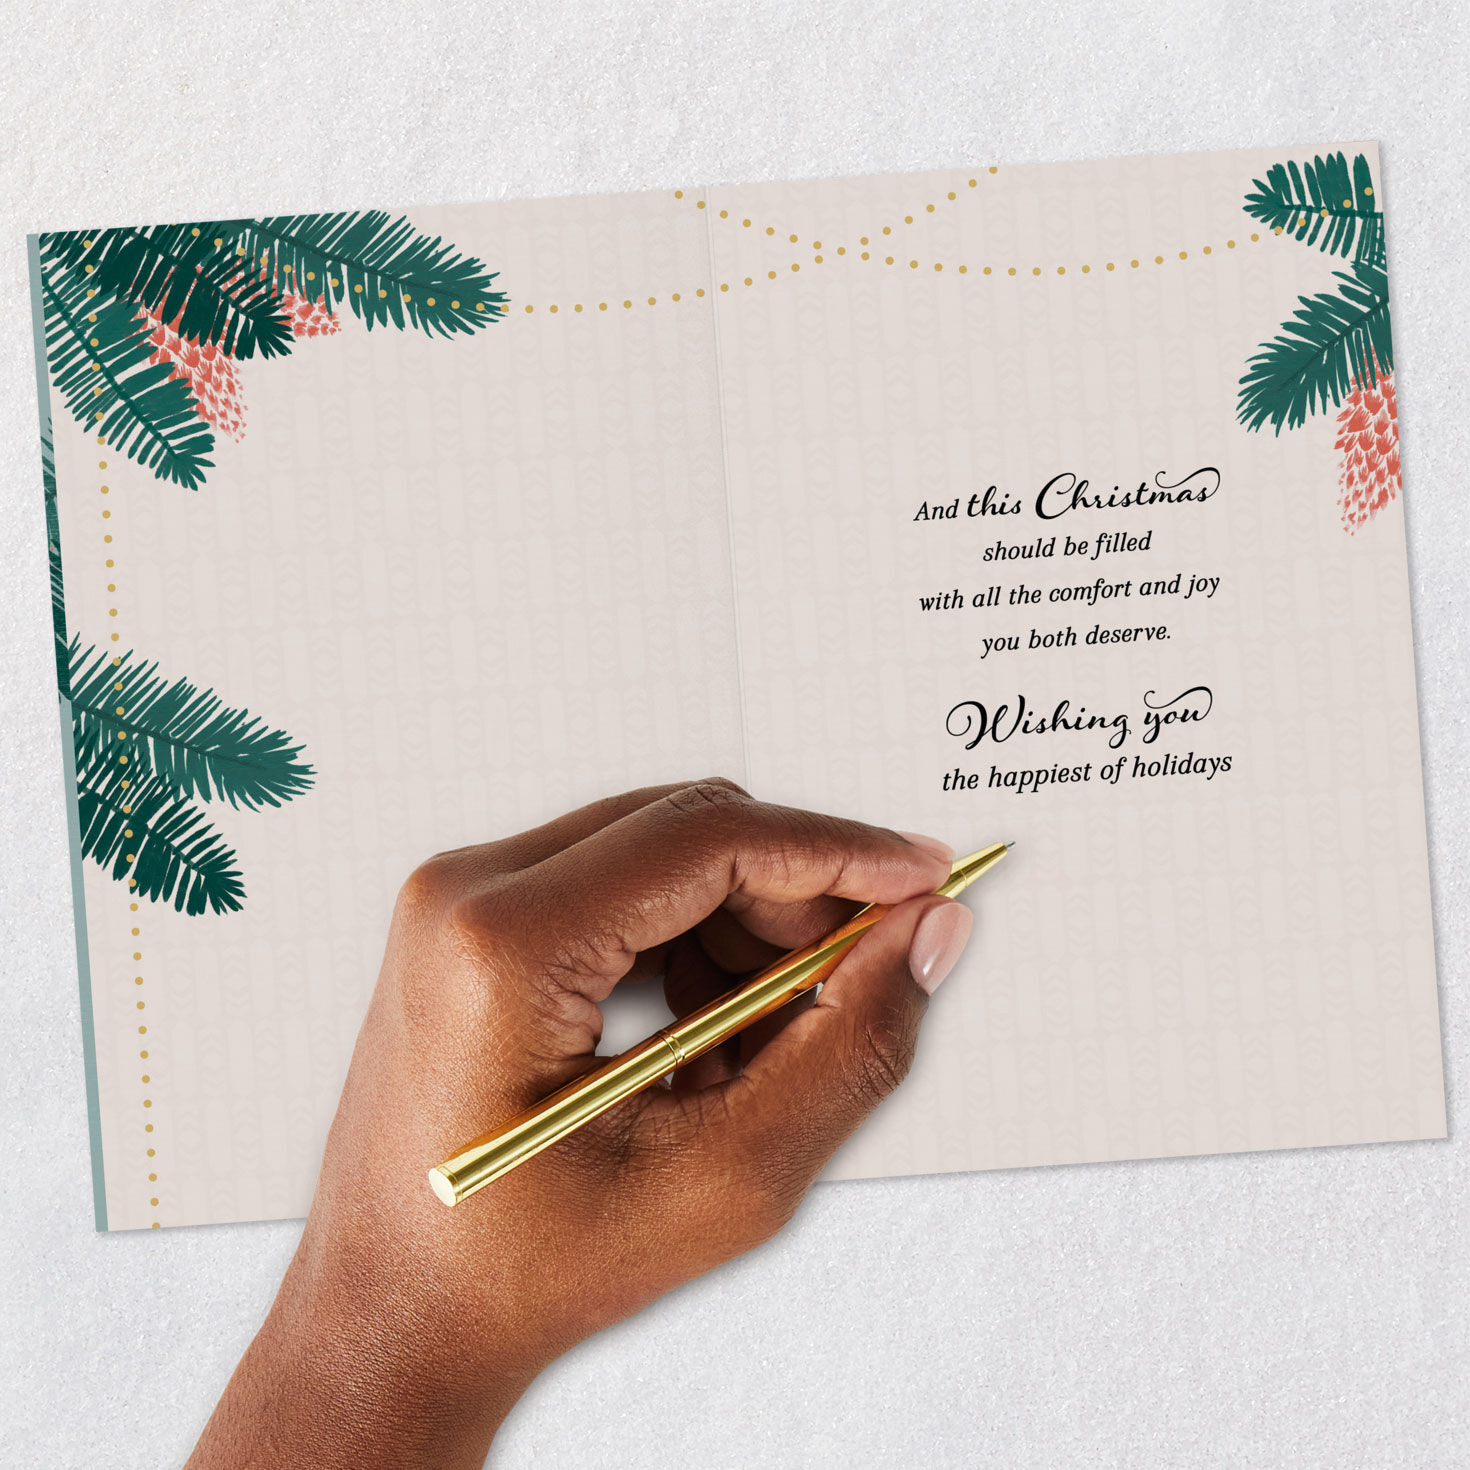 And this Christmas
should be filled
with all the comfort and joy
you both deserve.
Wishing you
the happiest of holidays